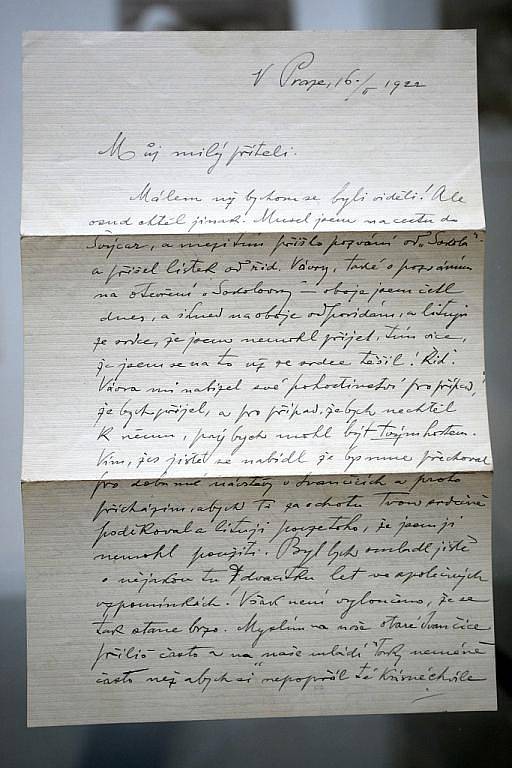 V Praze, 16./V 1922
Můj milý příteli.
Málem my bychom se byli viděli! Ale
osud chtěl jinak. Musel jsem na cestu do
Švýcar, a mezitím přišlo pozvání od „Sokola“
a přišel lístek od řid. Vávry, také o pozvání
na otevření „Sokolovny“ – oboje jsem četl
dnes, a ihned na oboje odpovídám, a lituji
ze srdce, že jsem nemohl přijet, tím více,
že jsem se na to už ze srdce těšil! Řid.
Vávra mi nabízel své pohostinství pro případ,
že bych přijel, a pro případ, že bych nechtěl
k němu, prý bych mohl být tvým hostem.
Vím, žes jistě se nabídl že bys mne přechoval
pro dobu mé návštěvy v Ivančicích a proto
přicházím, abych ti za ochotu tvou srdečně
poděkoval a lituji pouze toho, že jsem jí
nemohl použíti. Byl bych omládl jistě
o nějakou tu dvacítku let ve společných
vzpomínkách! Však není vyloučeno, že se
tak stane brzo. Myslím na naše staré Ivančice
příliš často a na naše mládí taky neméně
často než abych si nepopřál té krásné chvíle